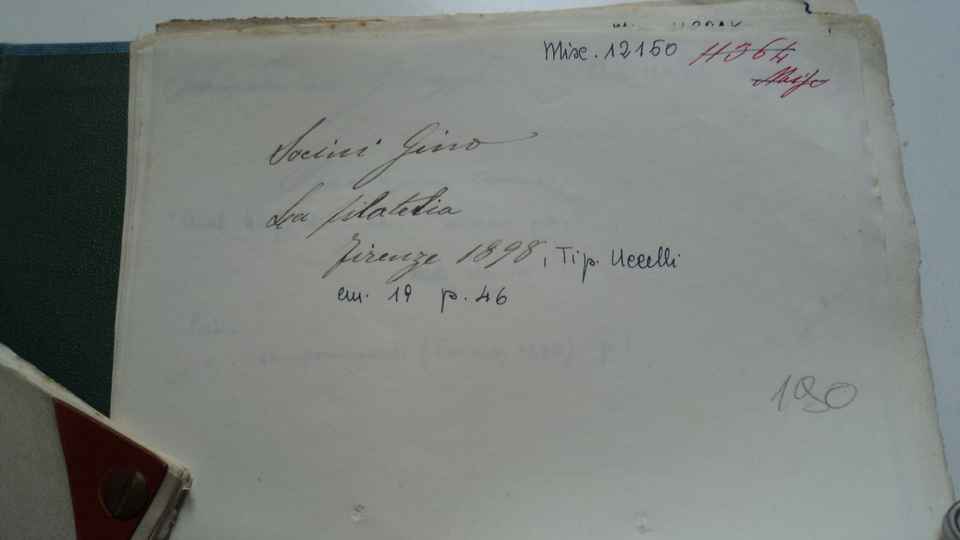 Misc. 12150
Socini Gino
La filatelia
Firenze 1898, Tip. Uccelli
cm. 19 p. 46
190